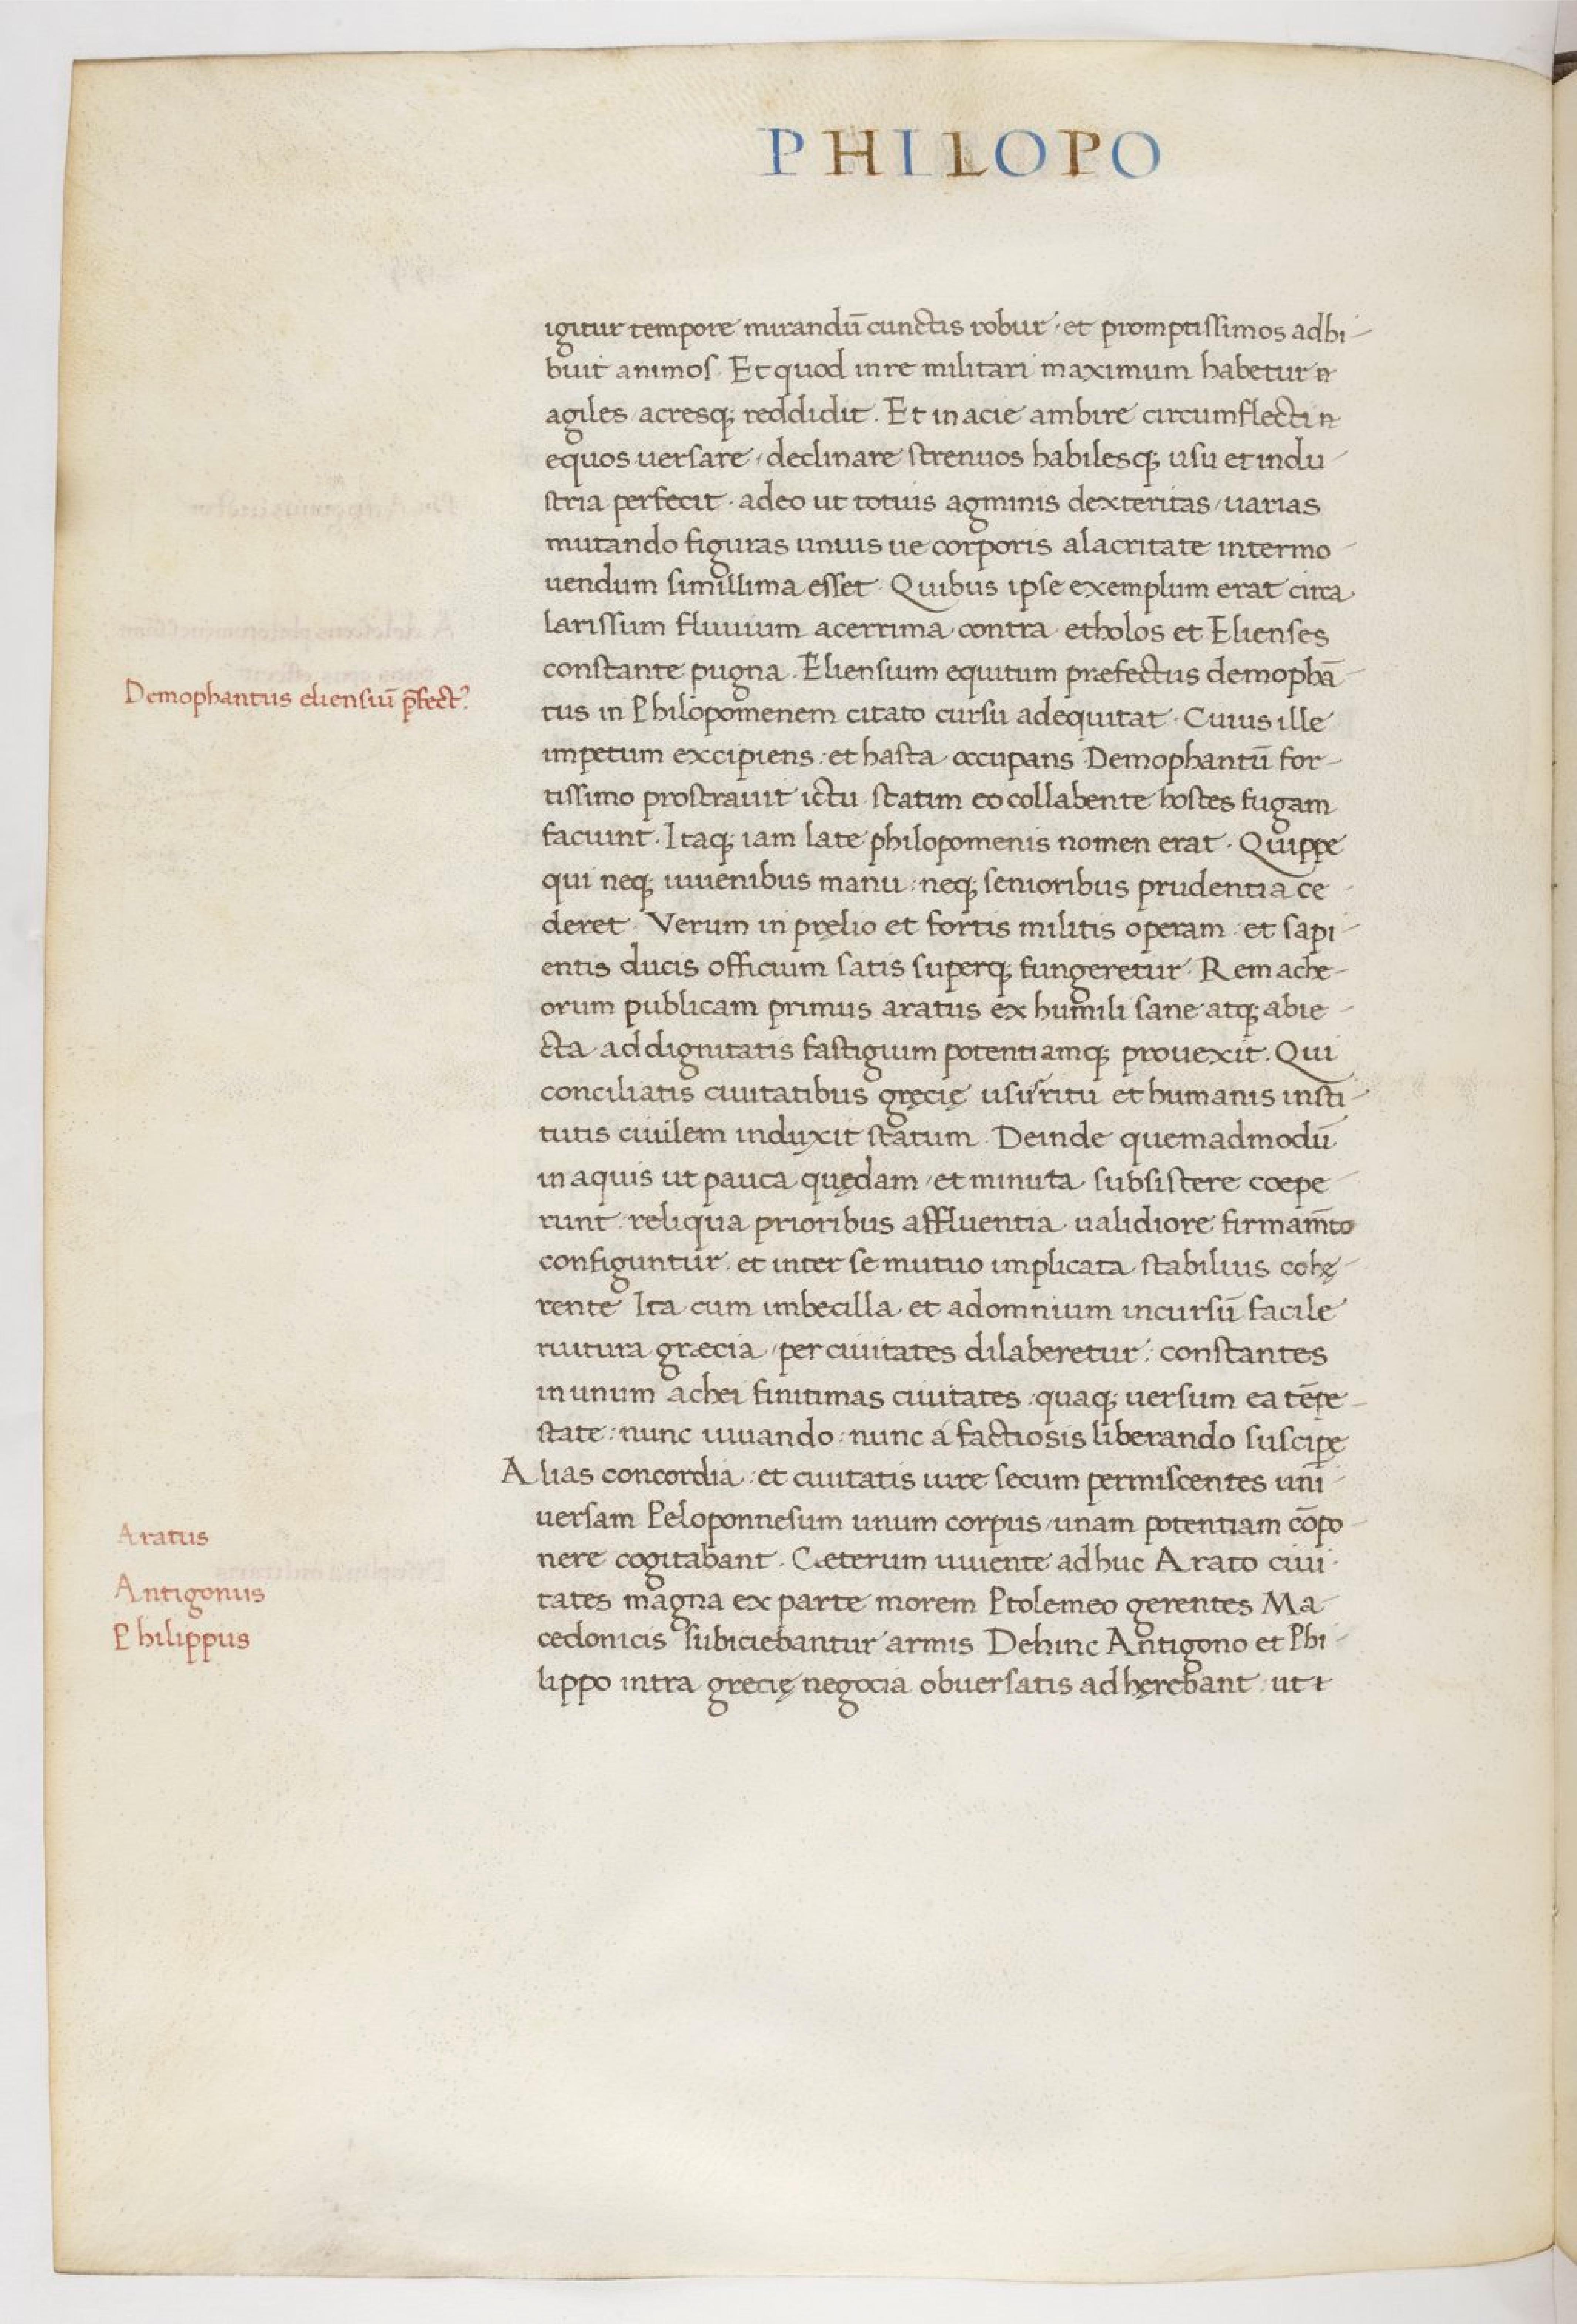 PHILOPO
igitur tempore mirandū cunctis robur· et promptissimos adhi-
buit animos. Et quod in re militari maximum habetur
agiles acresq; reddidit. Et in acie ambire circumflecti
equos uersare, declinare strenuos habilesq; usu et indu-
stria perfecit. adeo ut totius agminis dexteritas, uarias
mutando figuras unius ue corporis alacritate intermo-
uendum simillima esset. Quibus ipse exemplum erat circa
larissum fluuium acerrima contra etholos et Elienses
constante pugna. Eliensium equitum præfectus demophā-
Demophantus eliensiū p̄fect᾽.
tus in Philopomenem citato cursu adequitat. Cuius ille
impetum excipiens: et hasta occupans Demophantū for-
tissimo prostrauit ictu. statim eo collabente hostes fugam
faciunt. Itaq; iam late philopomenis nomen erat. Quippe
qui neq; iuuenibus manu: neq; senioribus prudentia ce-
deret. Verum in pręlio et fortis militis operam: et sapi-
entis ducis officium satis superq; fungeretur. Rem ache-
orum publicam primus aratus ex humili sane atq; abie-
cta ad dignitatis fastigium potentiamq; prouexit. Qui
conciliatis ciuitatibus gręcię usu ritu et humanis insti-
tutis ciuilem induxit statum. Deinde quemadmodū
in aquis ut pauca quędam, et minuta subsistere coepe-
runt: reliqua prioribus affluentia ualidiore firmam̄to
configuntur. et inter se mutuo implicata stabilius cohę-
rente. Ita cum imbecilla et ad omnium incursū facile
ruitura græcia, per ciuitates dilaberetur: constantes
in unum achei finitimas ciuitates: quaq; uersum ea tēpe-
state: nunc iuuando: nunc á factiosis liberando suscipe
Alias concordia: et ciuitatis iure secum permiscentes uni-
uersam Peloponnesum unum corpus, unam potentiam cōpo-
Aratus
nere cogitabant. Cæterum uiuente adhuc Arato ciui-
Antigonus
tates magna ex parte morem Ptolemeo gerentes Ma-
Philippus
cedonicis subiciebantur armis. Dehinc Antigono et Phi-
lippo intra grecię negocia obuersatis adhęrebant: ut